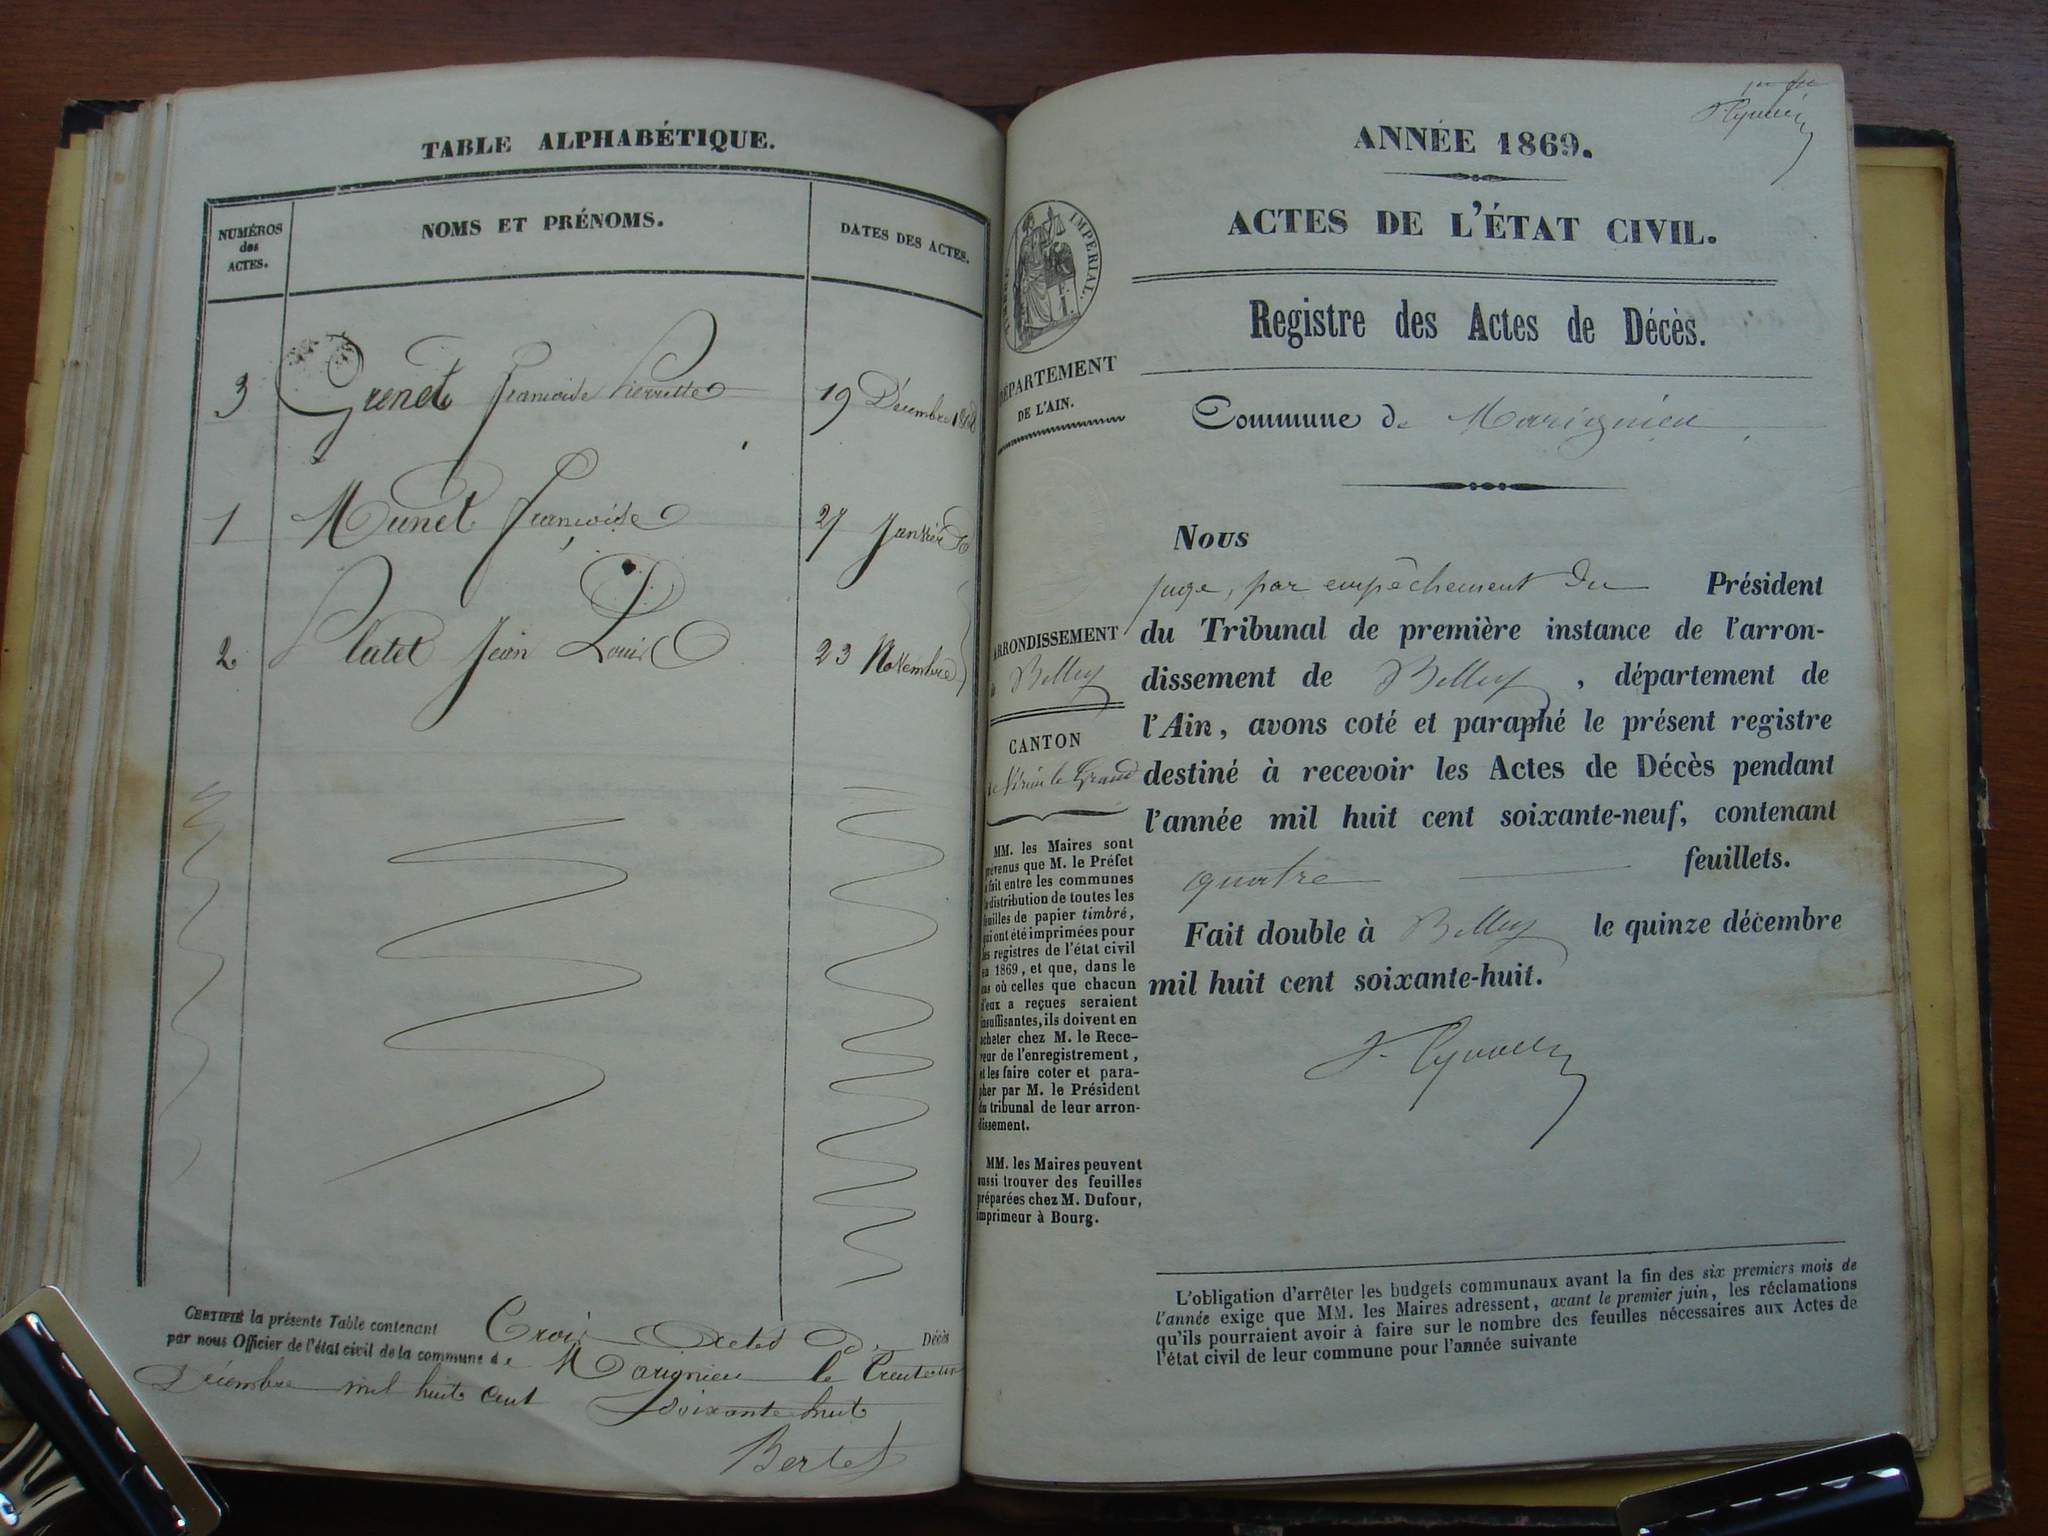 TABLE ALPHABÉTIQUE.
NUMÉROS
des
ACTES.
NOMS ET PRÉNOMS.
DATES DES ACTES.
3 Grenet Francoise Pierrette 19 Décembre 1868
1 Munet Françoise 27 Janvier
2 Plutet Jean Louis 23 Novembre
CERTIFIÉ la présente Table contenant Trois Actes De Décès
par nous Officier de l'état civil de la commune de Marignieu le Trente un
Décembre mil huit cent soixante huit
Bertet
ANNÉE 1869.
ACTES DE L'ÉTAT CIVIL.
TIMBRE IMPÉRIAL.
DÉPARTEMENT
DE L'AIN.
Registre des Actes de Décès.
Commune de Marignieu
ARRONDISSEMENT
de Belley
CANTON
de Virieu le Grand
MM. les Maires sont
prévenus que M. le Préfet
a fait entre les communes
la distribution de toutes les
feuilles de papier timbré,
qui ont été imprimées pour
les registres de l'état civil
en 1869, et que, dans le
cas où celles que chacun
d'eux a reçues seraient
insuffisantes, ils doivent en
acheter chez M. le Rece-
veur de l'enregistrement,
et les faire coter et para-
pher par M. le Président
du tribunal de leur arron-
dissement.
MM. les Maires peuvent
aussi trouver des feuilles
préparées chez M. Dufour,
imprimeur à Bourg.
Nous
juge, par empêchement du Président
du Tribunal de première instance de l'arron-
dissement de Belley, département de
l'Ain, avons coté et paraphé le présent registre
destiné à recevoir les Actes de Décès pendant
l'année mil huit cent soixante-neuf, contenant
quatre feuillets.
Fait double à Belley le quinze décembre
mil huit cent soixante-huit.
L'obligation d'arrêter les budgets communaux avant la fin des six premiers mois de
l'année exige que MM. les Maires adressent, avant le premier juin, les réclamations
qu'ils pourraient avoir à faire sur le nombre des feuilles nécessaires aux Actes de
l'état civil de leur commune pour l'année suivante